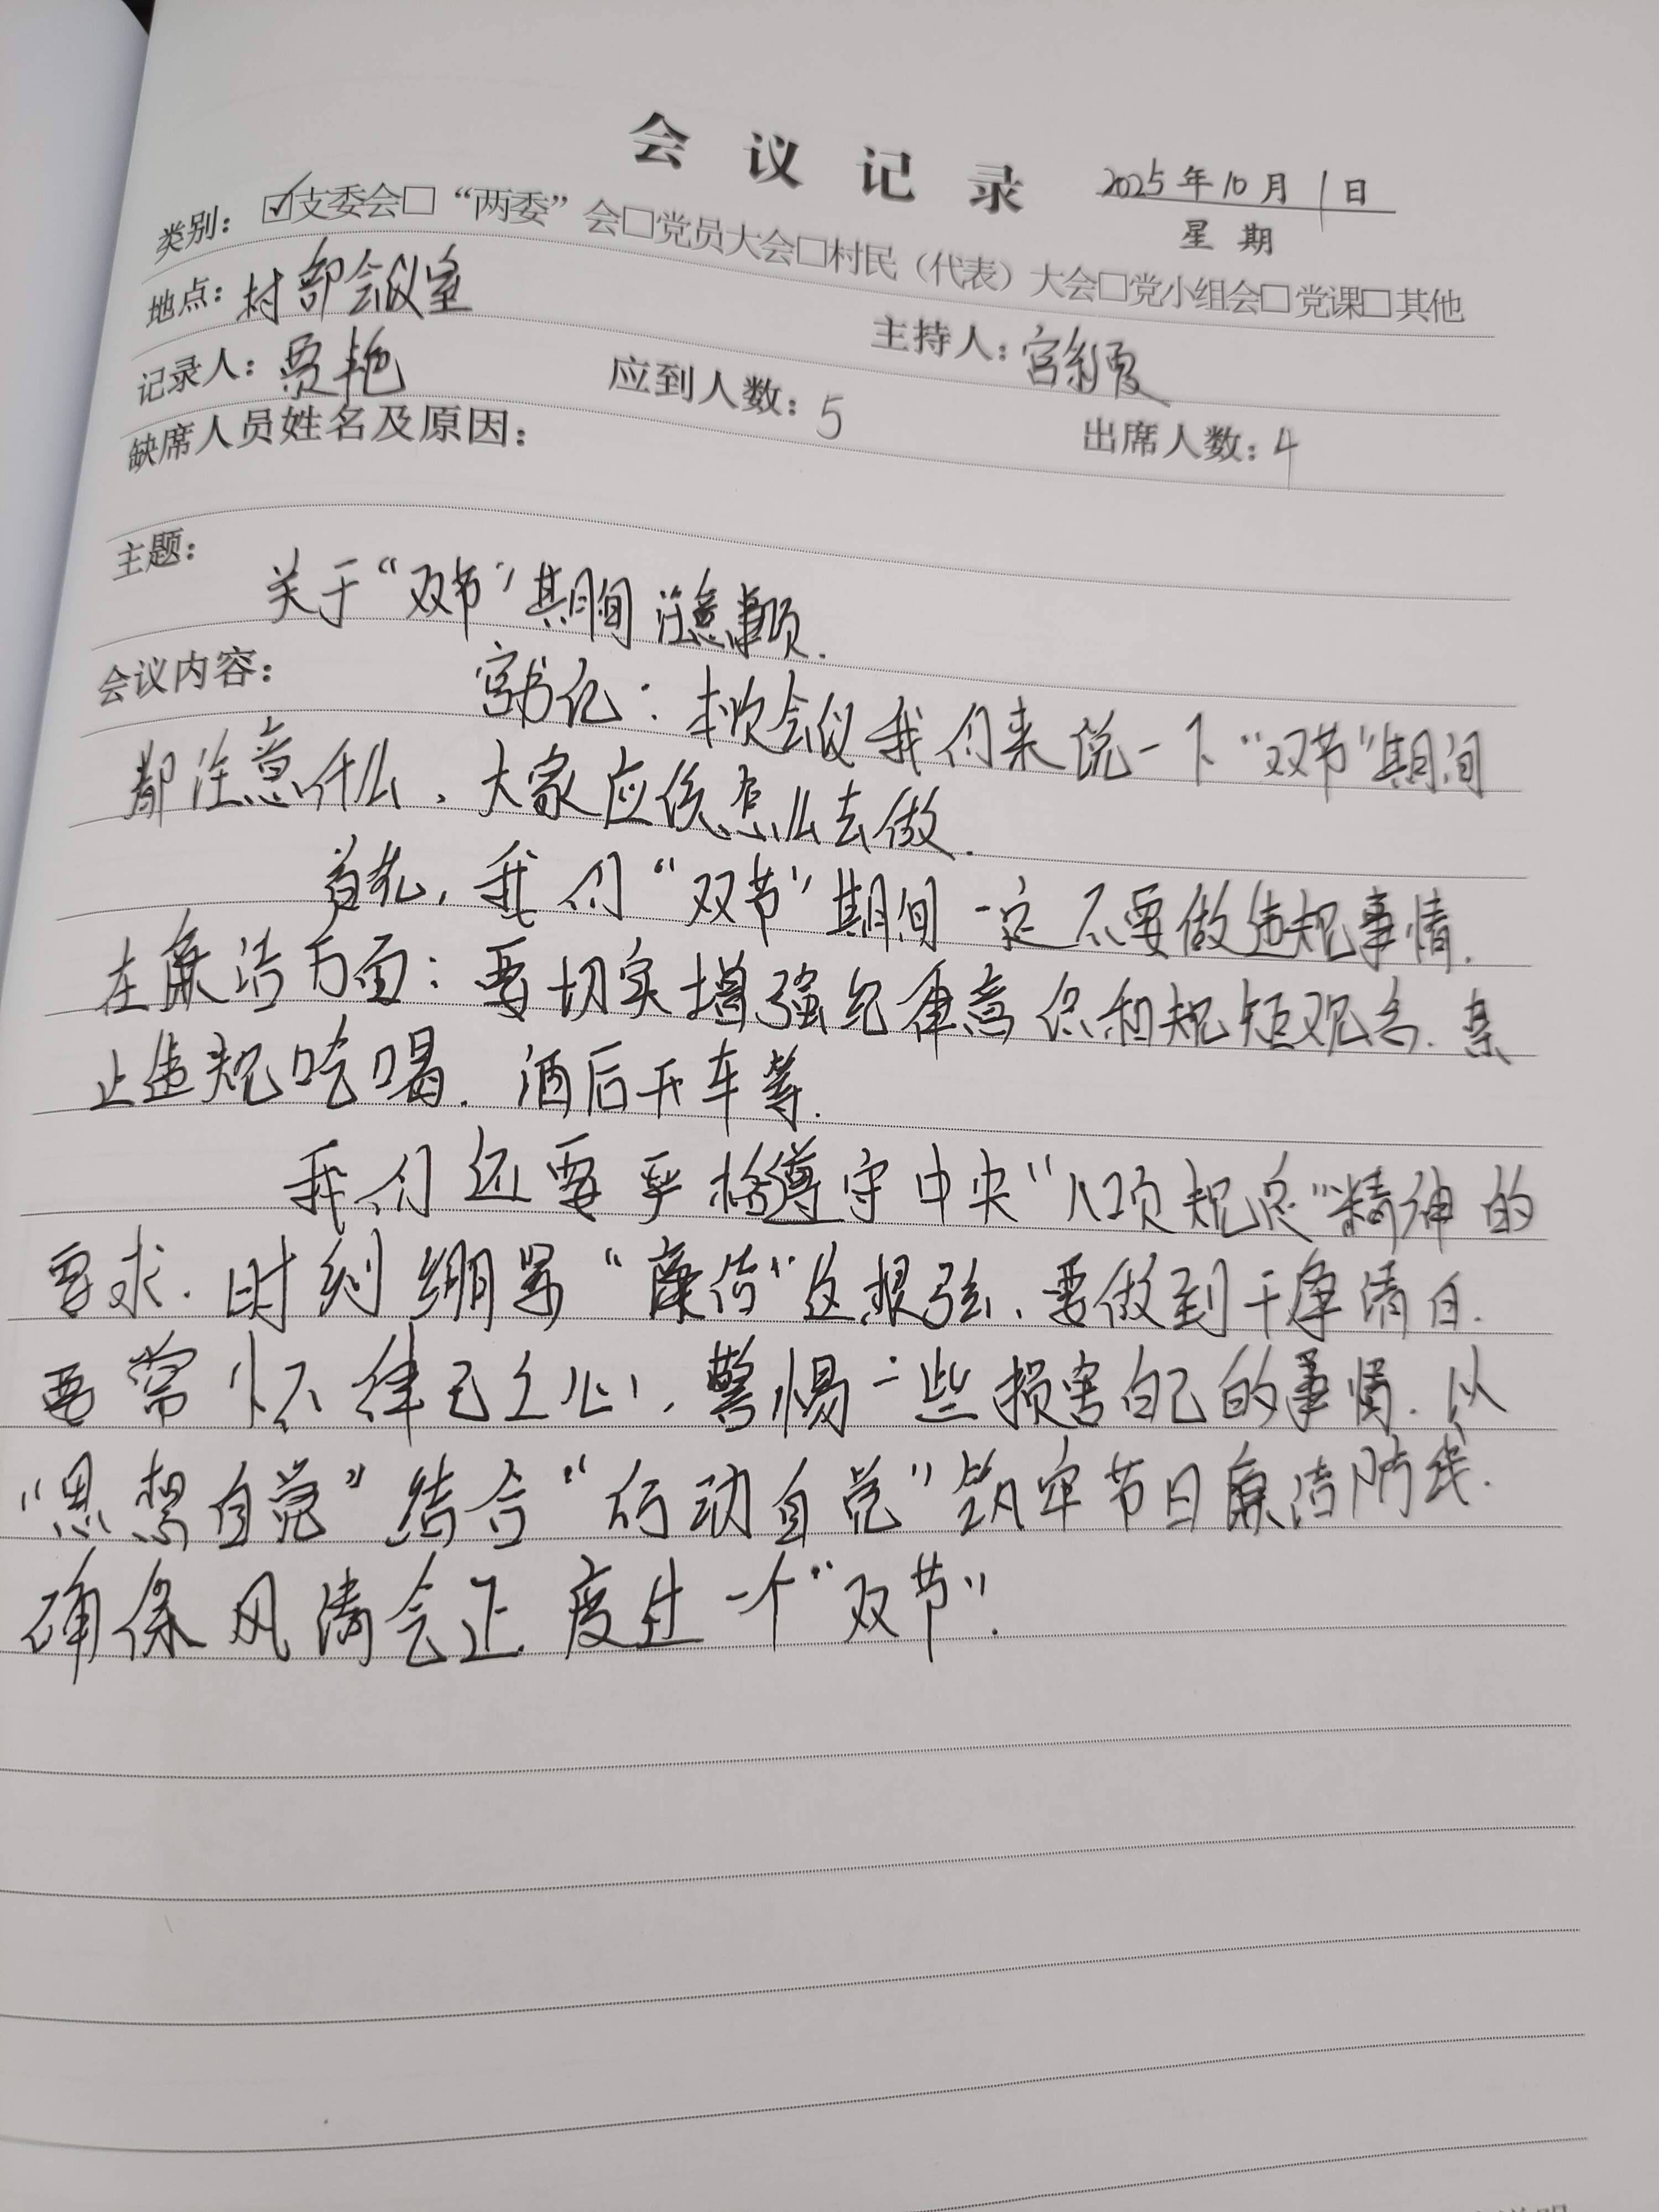 会议记录
2025年10月1日
星期
类别：☑支委会□“两委”会□党员大会□村民（代表）大会□党小组会□党课□其他
地点：村部会议室
主持人：宫
记录人：贾艳 应到人数：5 出席人数：4
缺席人员姓名及原因：
主题：
关于“双节”期间注意事项.
会议内容： 宫书记：本次会议我们来说一下“双节”期间
都注意什么，大家应该怎么去做.
首先，我们“双节”期间一定不要做违规事情.
在廉洁方面：要切实增强纪律意识和规矩观念.禁
止违规吃喝.酒后开车等.
我们还要严格遵守中央“八项规定”精神的
要求.时刻绷紧“廉洁”这根弦、要做到干净清白.
要常怀律己之心，警惕一些损害自己的事情.从
“思想自觉”结合“行动自觉”筑牢节日廉洁防线.
确保风清气正度过一个“双节”.